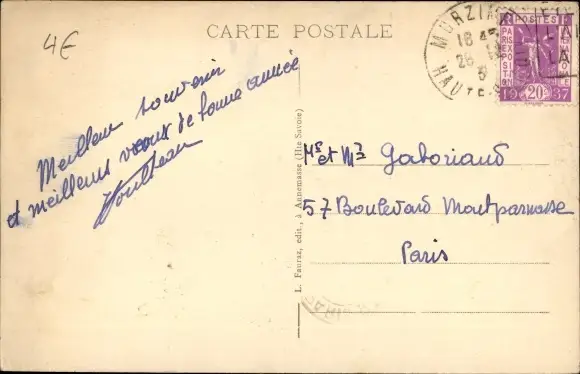 4€
CARTE POSTALE
MORZI
18 45
26 12
HAUTE-S
POSTES
PARIS
EXPOSITION
1937
20c
Meilleur souvenir
et meilleurs vœux de bonne année
L. Fauraz, édit., à Annemasse (Hte Savoie)
Mr et Me Gaboriaud
57 Boulevard Montparnasse
Paris